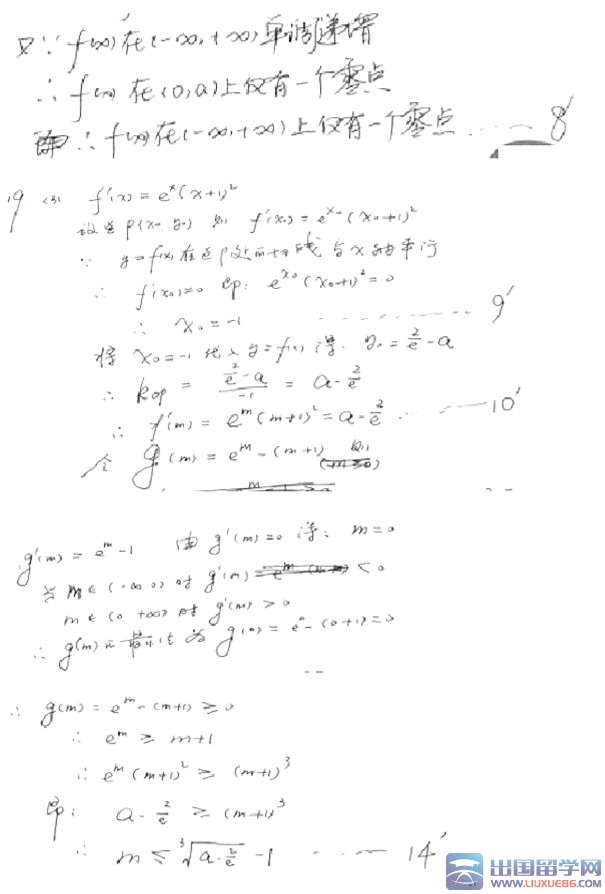 又∵ f(x)在(-∞,+∞)单调递增
∴ f(x)在(0,a)上仅有一个零点
∴ f(x)在(-∞,+∞)上仅有一个零点 ······ 8'
19 (3) f'(x) = e^x(x+1)^2
设点P(x₀ y₀) 则 f'(x₀) = e^{x₀}(x₀+1)^2
∵ y=f(x)在点P处的切线与x轴平行
∴ f'(x₀)=0 即: e^{x₀}(x₀+1)^2=0
∴ x₀=-1 ······ 9'
将 x₀=-1 代入 y=f(x) 得: y₀=2/e-a
∴ k_{op} = (2/e-a)/(-1) = a-2/e
∴ f'(m) = e^m(m+1)^2 = a-2/e ······ 10'
令 g(m) = e^m-(m+1) 则
g'(m) = e^m-1 由 g'(m)=0 得: m=0
当 m∈(-∞ 0) 时 g'(m) < 0
m∈(0 +∞) 时 g'(m) > 0
∴ g(m)的最小值为 g(0) = e^0-(0+1)=0
∴ g(m) = e^m-(m+1) ≥ 0
∴ e^m ≥ m+1
∴ e^m(m+1)^2 ≥ (m+1)^3
即: a-2/e ≥ (m+1)^3
∴ m ≤ ∛(a-2/e) -1 ······ 14'
出国留学网
WWW.LIUXUE86.COM